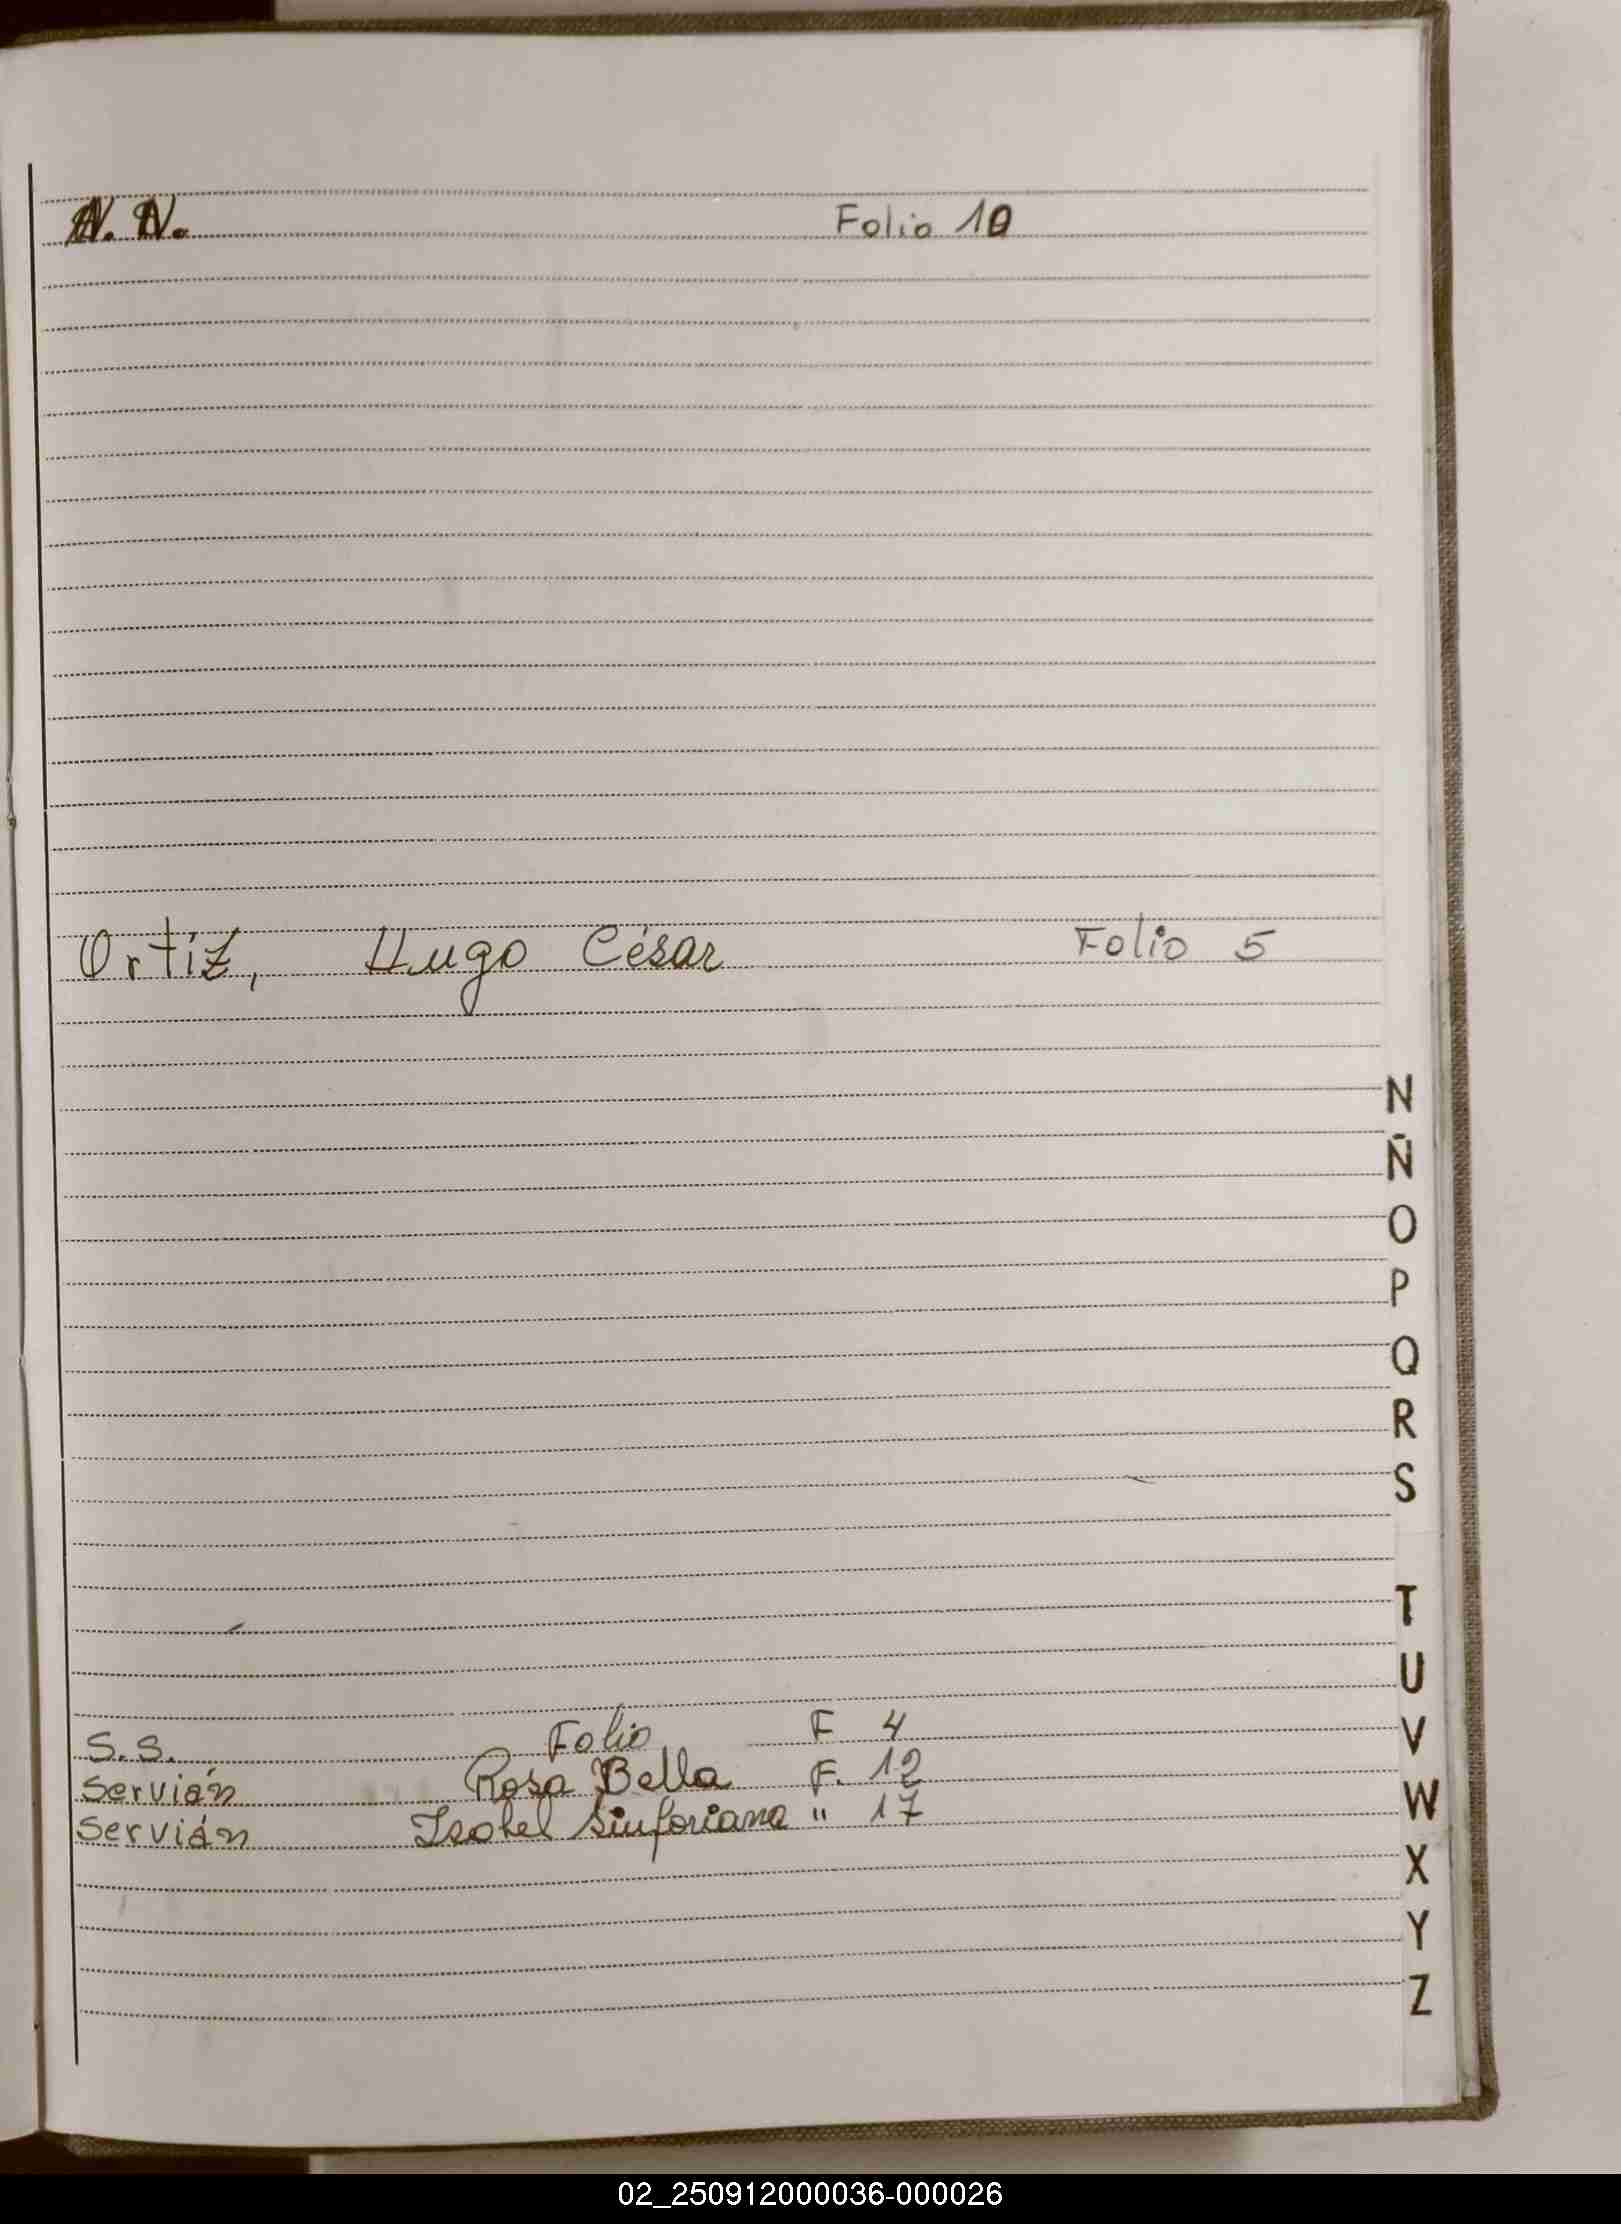 N. N. Folio 10
Ortiz, Hugo César Folio 5
N
Ñ
O
P
Q
R
S
T
U
V
W
X
Y
Z
S.S. Folio F. 4
Servián Rosa Bella F. 12
Servián Isabel Sinforiana " 17
02_250912000036-000026